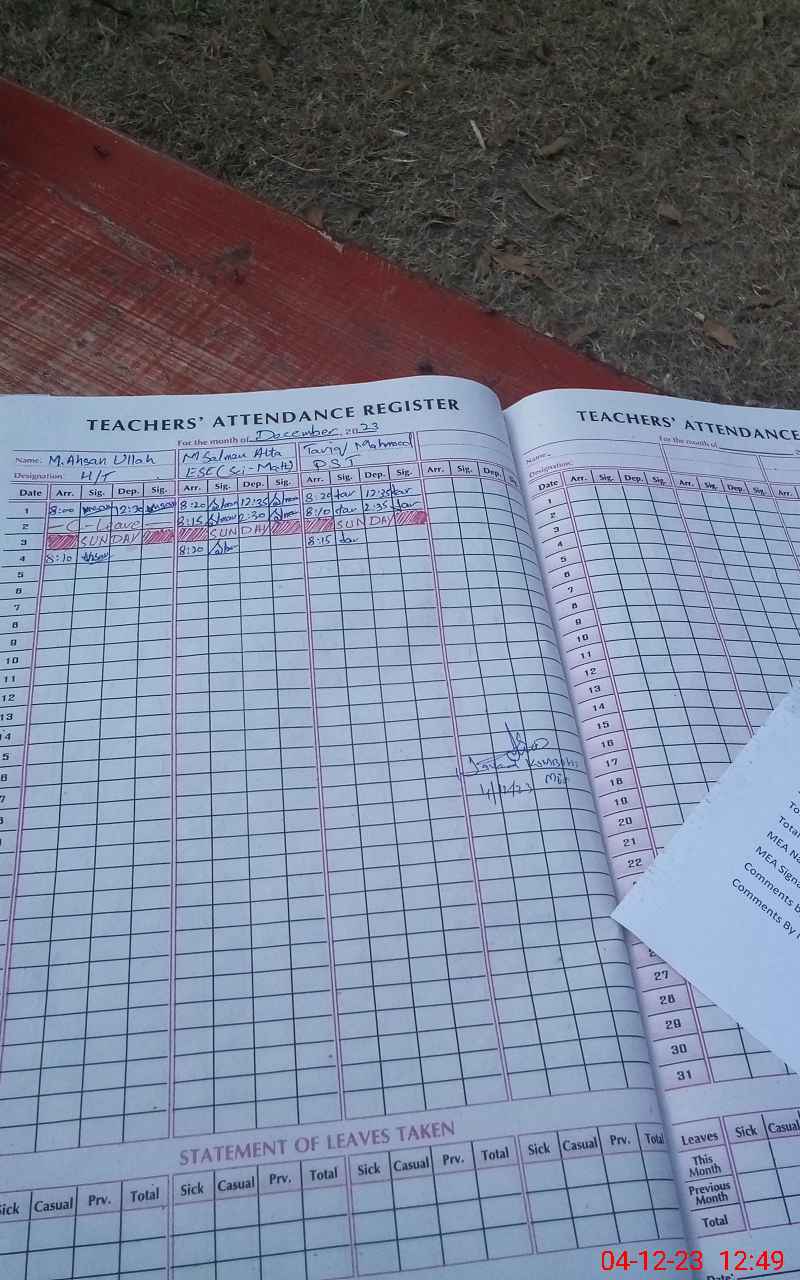 TEACHERS' ATTENDANCE REGISTER
For the month of December 2023
Name: M. Ahsan Ullah M Salman Atta Tariq Mahmood
Designation: H/T ESE (Sci-Math) PST
Date Arr. Sig. Dep. Sig. Arr. Sig. Dep. Sig. Arr. Sig. Dep. Sig. Arr. Sig. Dep. Sig.
1 8:00 12:30 8:20 12:35 8:20 12:35
2 C-Leave 8:15 2:30 8:10 2:35
3 SUNDAY SUNDAY SUNDAY
4 8:10 8:20 8:15
5
6
7
8
9
10
11
12
13
14
5
6
7
8
9
4/12/23
STATEMENT OF LEAVES TAKEN
Sick Casual Prv. Total Sick Casual Prv. Total Sick Casual Prv. Total Sick Casual Prv. Total
TEACHERS' ATTENDANCE
For the month of
Name.
Designation:
Date Arr. Sig. Dep. Sig. Arr. Sig. Dep. Sig.
1
2
3
4
5
6
7
8
9
10
11
12
13
14
15
16
17
18
19
20
21
22
27
28
29
30
31
Leaves Sick Casual
This Month
Previous Month
Total
Date:
MEA
Comments
Comments By
04-12-23 12:49